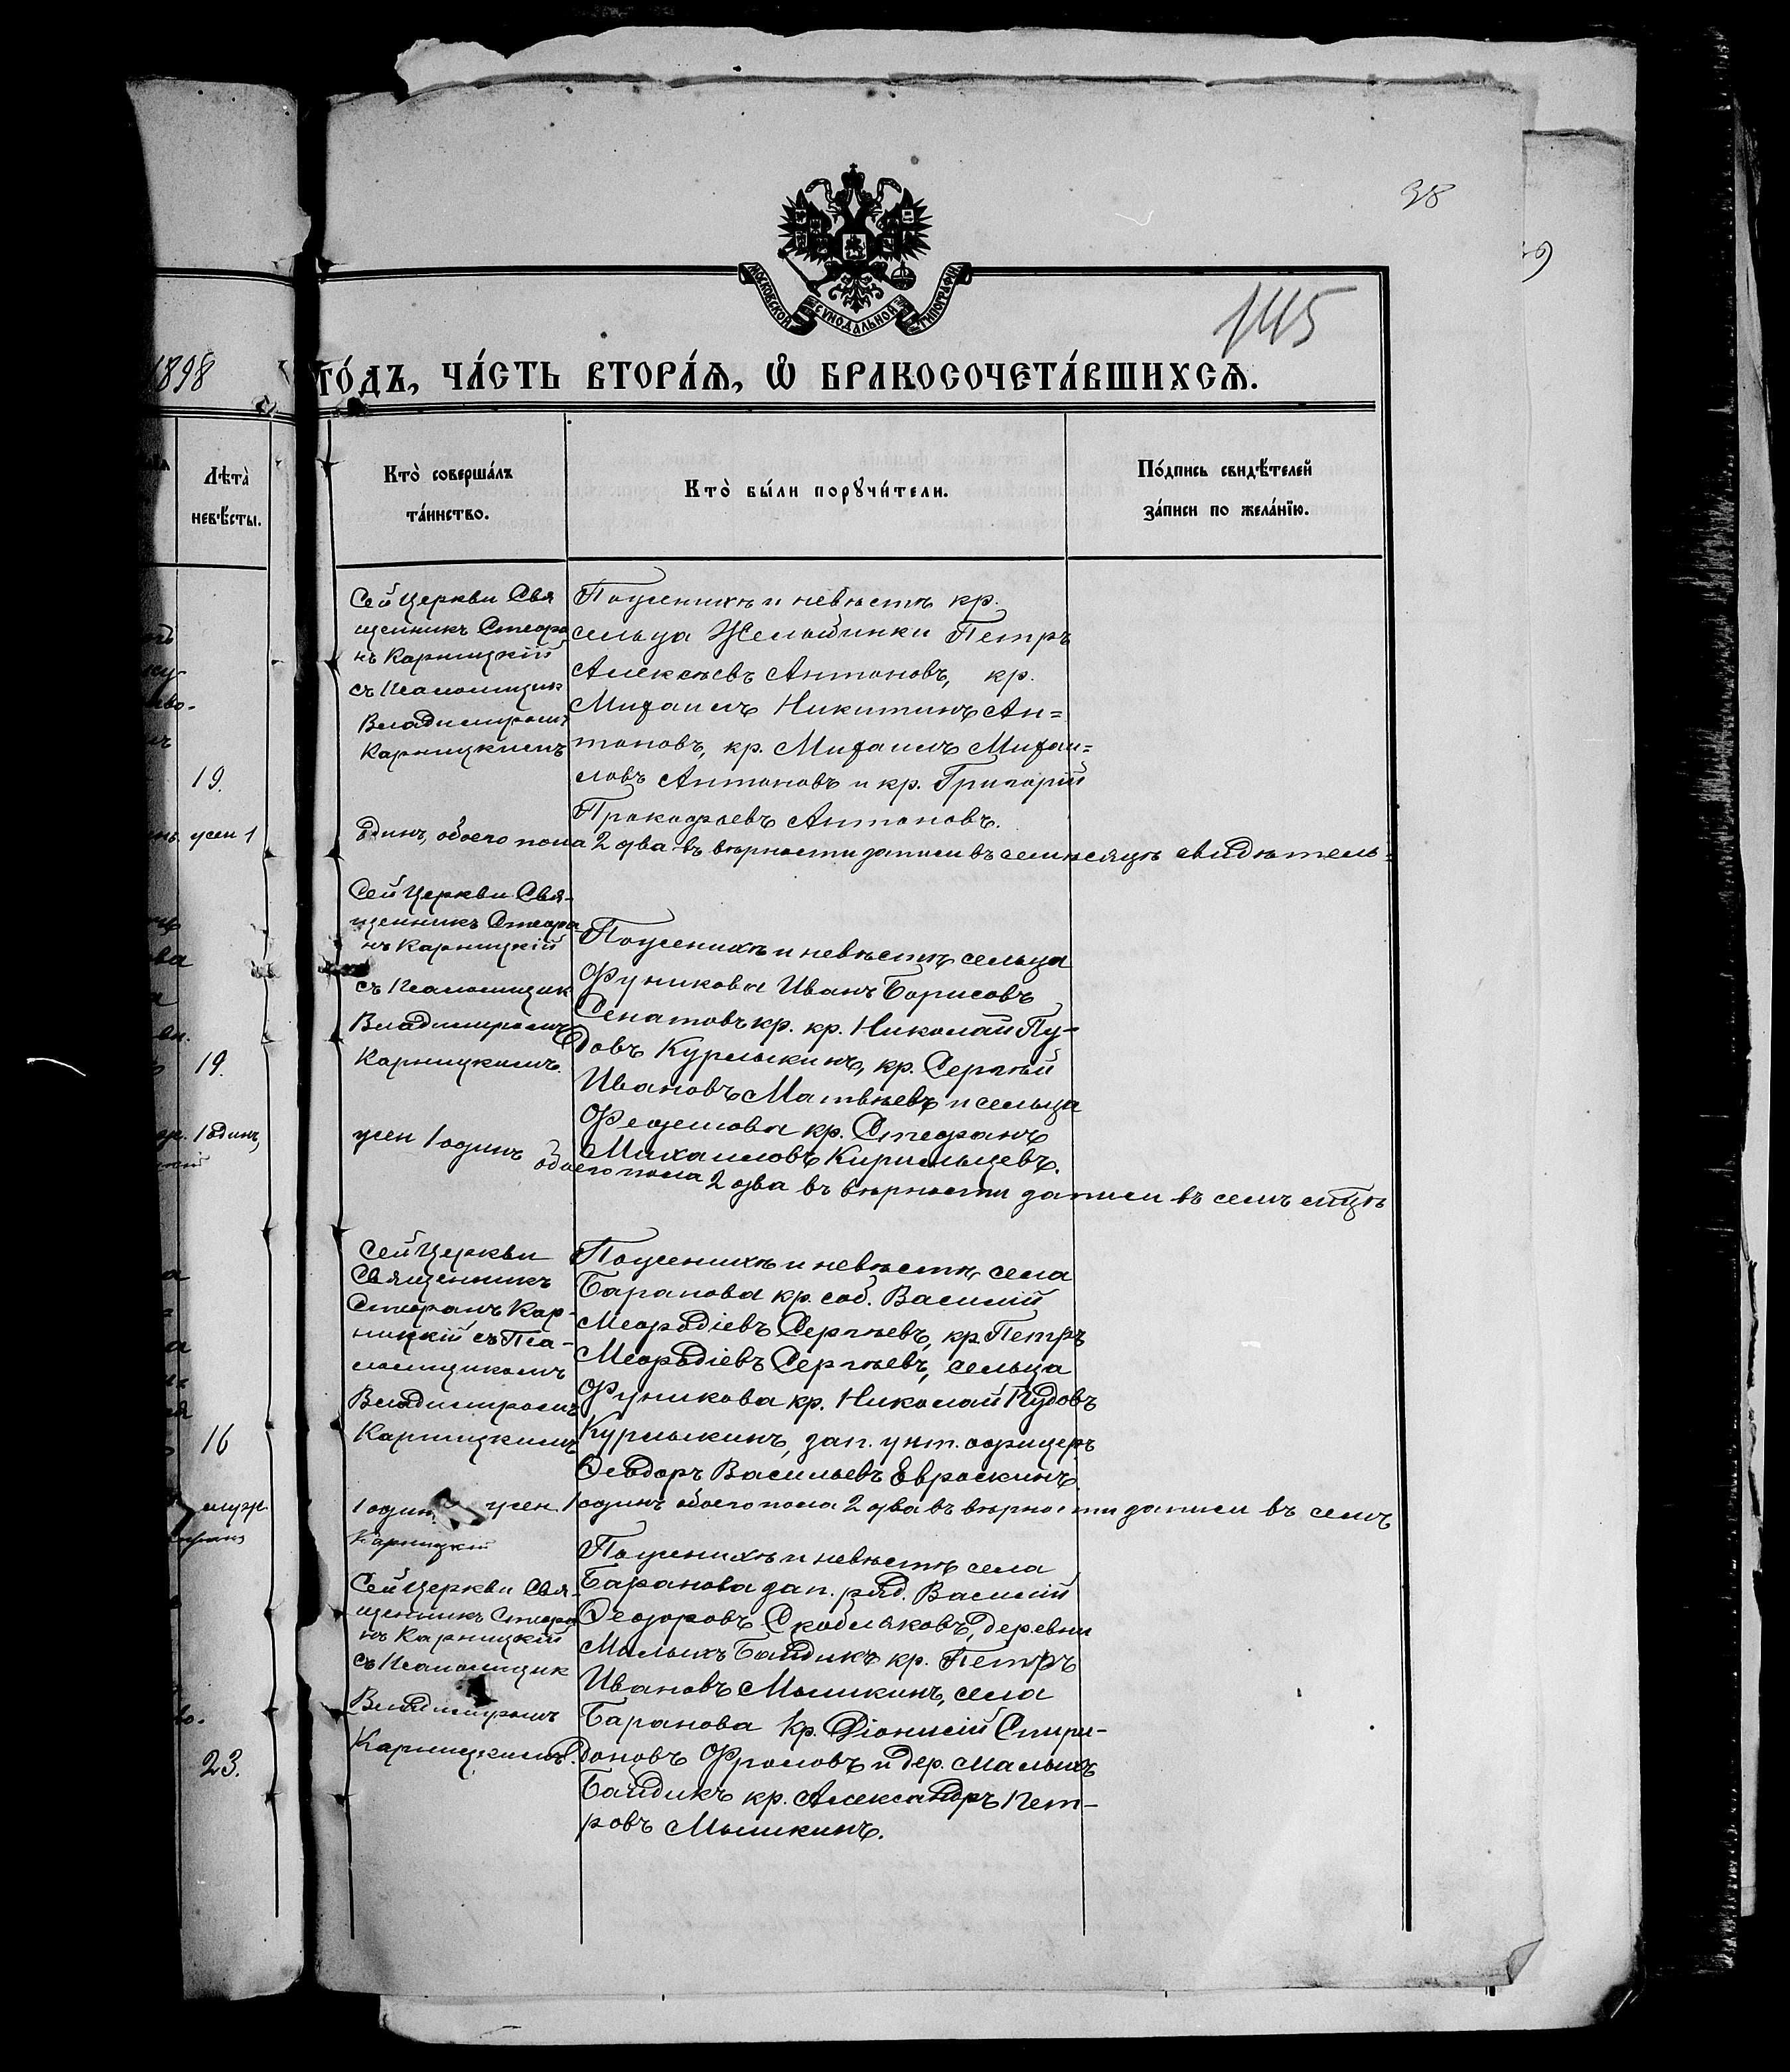 38
МОСКОВСКОЙ СѴНОДАЛЬНОЙ ТИПОГРАФІИ
145
1898
го́дъ, ча́сть втора́ѧ, ѡ҆ бракосочета́вшихсѧ.
Лѣта̀
невѣ́сты.
Кто̀ соверша́лъ
та́инство.
Кто̀ бы́ли порꙋчи́тели.
По́дпись свидѣ́телей
за́писи по жела́нїю.
19.
Сей Церкви Свя
щенникъ Стефа
нъ Карницкій
съ Псаломщик
Владимиромъ
Карницкимъ
По женихѣ и невѣстѣ кр.
сельца Петръ
Алексѣевъ Антоновъ, кр.
Михаилъ Никитинъ Ан=
тоновъ, кр. Михаилъ Михаи=
ловъ Антоновъ и кр. Григорій
Прокофьевъ Антоновъ.
жен 1
одинъ, обоего пола 2 два въ вѣрности записи въ семъ мѣсяцѣ свидѣтель=
19.
Сей Церкви Свя-
щенникъ Стефа
нъ Карницкій
съ Псаломщик
Владимиромъ
Карницкимъ.
По женихѣ и невѣстѣ сельца
Фуникова Иванъ Борисовъ
Сенатовъ кр. кр. Николай Пу-
довъ Курлыкинъ, кр. Сергѣй
Ивановъ Матвѣевъ и сельца
кр. Стефанъ
Михаиловъ Кирильцевъ.
1 одинъ,
жен 1 одинъ обоего пола 2 два въ вѣрности записи въ семъ мцѣ
16
Сей Церкви
Священникъ
Стефанъ Кар-
ницкій съ Пса-
ломщикомъ
Владимиромъ
Карницкимъ
По женихѣ и невѣстѣ села
Баранова кр. соб. Василій
Меѳодіевъ Сергѣевъ, кр Петръ
Меѳодіевъ Сергѣевъ, сельца
Фуникова кр. Николай Пудовъ
Курлыкинъ, зап. унт. офицеръ
Ѳеодоръ Васильевъ Евраскинъ.
муж.
1 один жен. 1 одинъ обоего пола 2 два въ вѣрности записи въ семъ
Карницкій
23.
Сей Церкви Свя-
щенникъ Стефа
нъ Карницкій
съ Псаломщик
Владимиромъ
Карницкимъ.
По женихѣ и невѣстѣ села
Баранова зап. ряд. Василій
Ѳеодоровъ Скобляковъ, деревни
Малыхъ Байдикъ кр. Петръ
Ивановъ Мышкинъ, села
Баранова кр. Діонисій Спири-
доновъ Фроловъ и дер. Малыхъ
Байдикъ кр. Александръ Пет-
ровъ Мышкинъ.